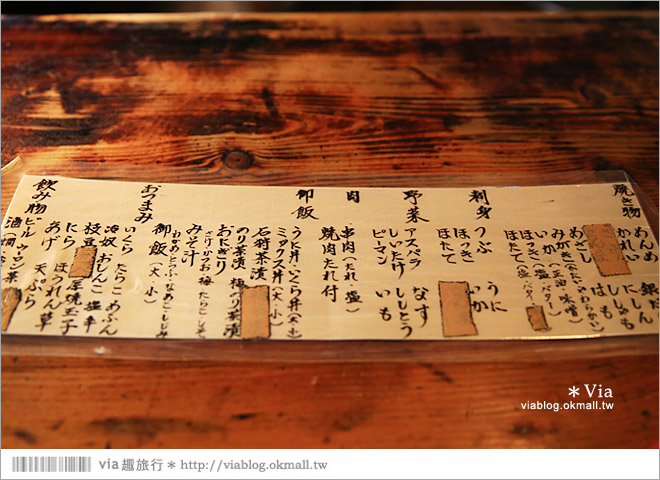 焼き物
めんめ 銀だら
かれい にしん
ししゃも
めざし はも
みがき(かたい・やわらかい)
いか(正油・味噌)
ほっき(塩・バター)
ほたて(塩・バター)
刺身
つぶ うに
ほっき いか
ほたて
野菜
アスパラ なす
しいたけ ししとう
ピーマン いも
肉
串肉(たれ・塩)
焼肉たれ付
御飯
うに丼・いくら丼(大・小)
ミックス丼(大・小)
石狩茶漬
のり茶漬 梅のり茶漬
おにぎり
さけ かつお 梅 たらこ しそ
みそ汁
わかめ とうふ なめこ しじみ
御飯(大・小)
おつまみ
いくら たらこ めふん
冷奴 おしんこ 塩辛
枝豆 厚焼玉子
にら ほうれん草
あげ 天ぷら
飲み物
ビール ウーロン茶
酒
*Via
viablog.okmall.tw
via趣旅行* http://viablog.okmall.tw